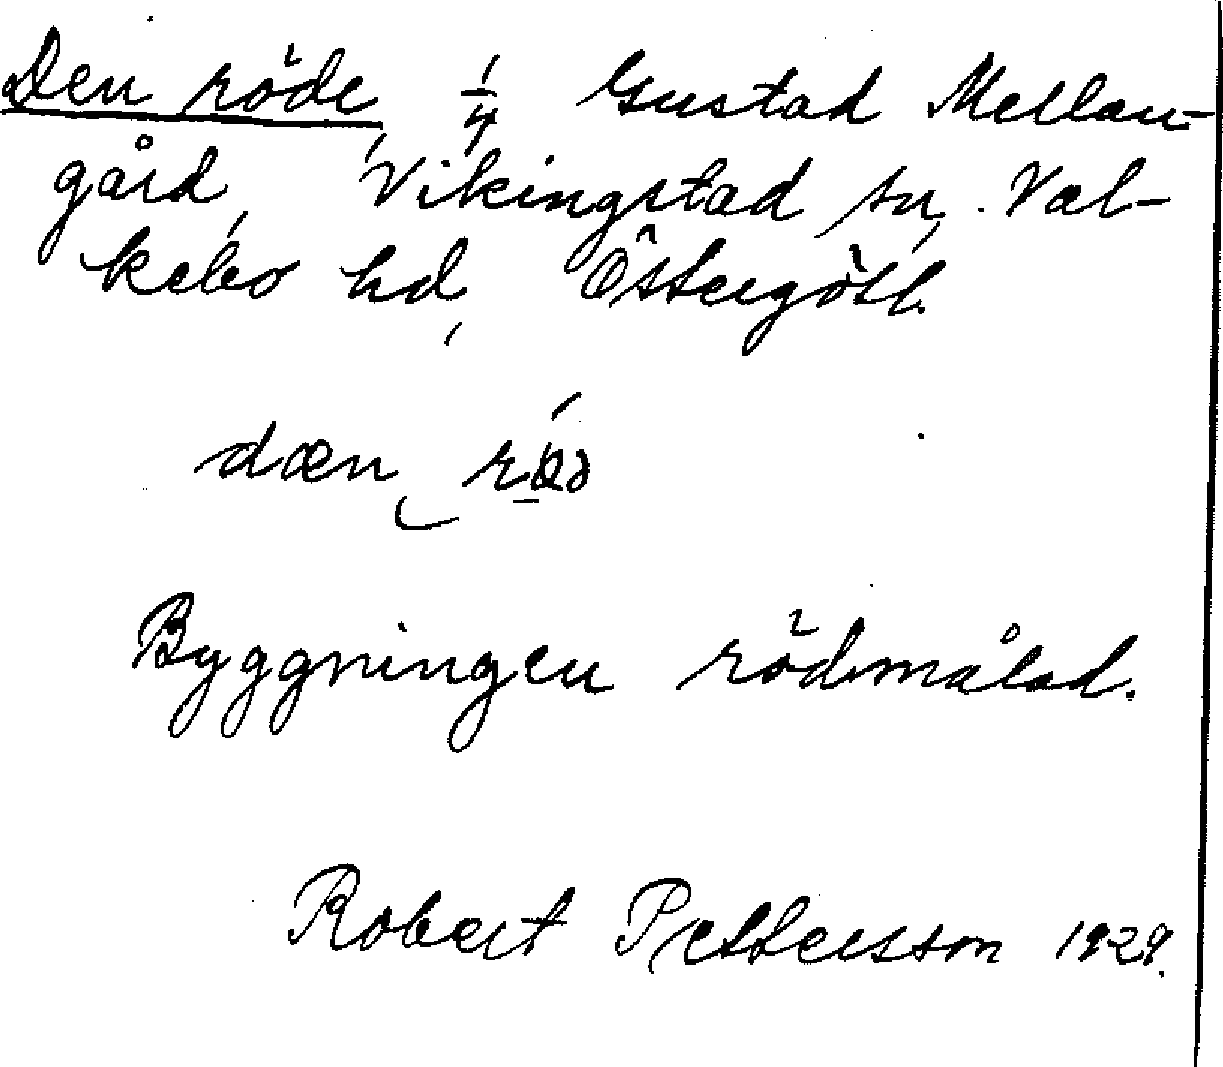 Den röde, 1/4 Gustad Mellan-
gård, Vikingstad sn, Val-
kebo hd, Östergötl.
dæn
Byggningen rödmålad.
Robert Pettersson 1929.